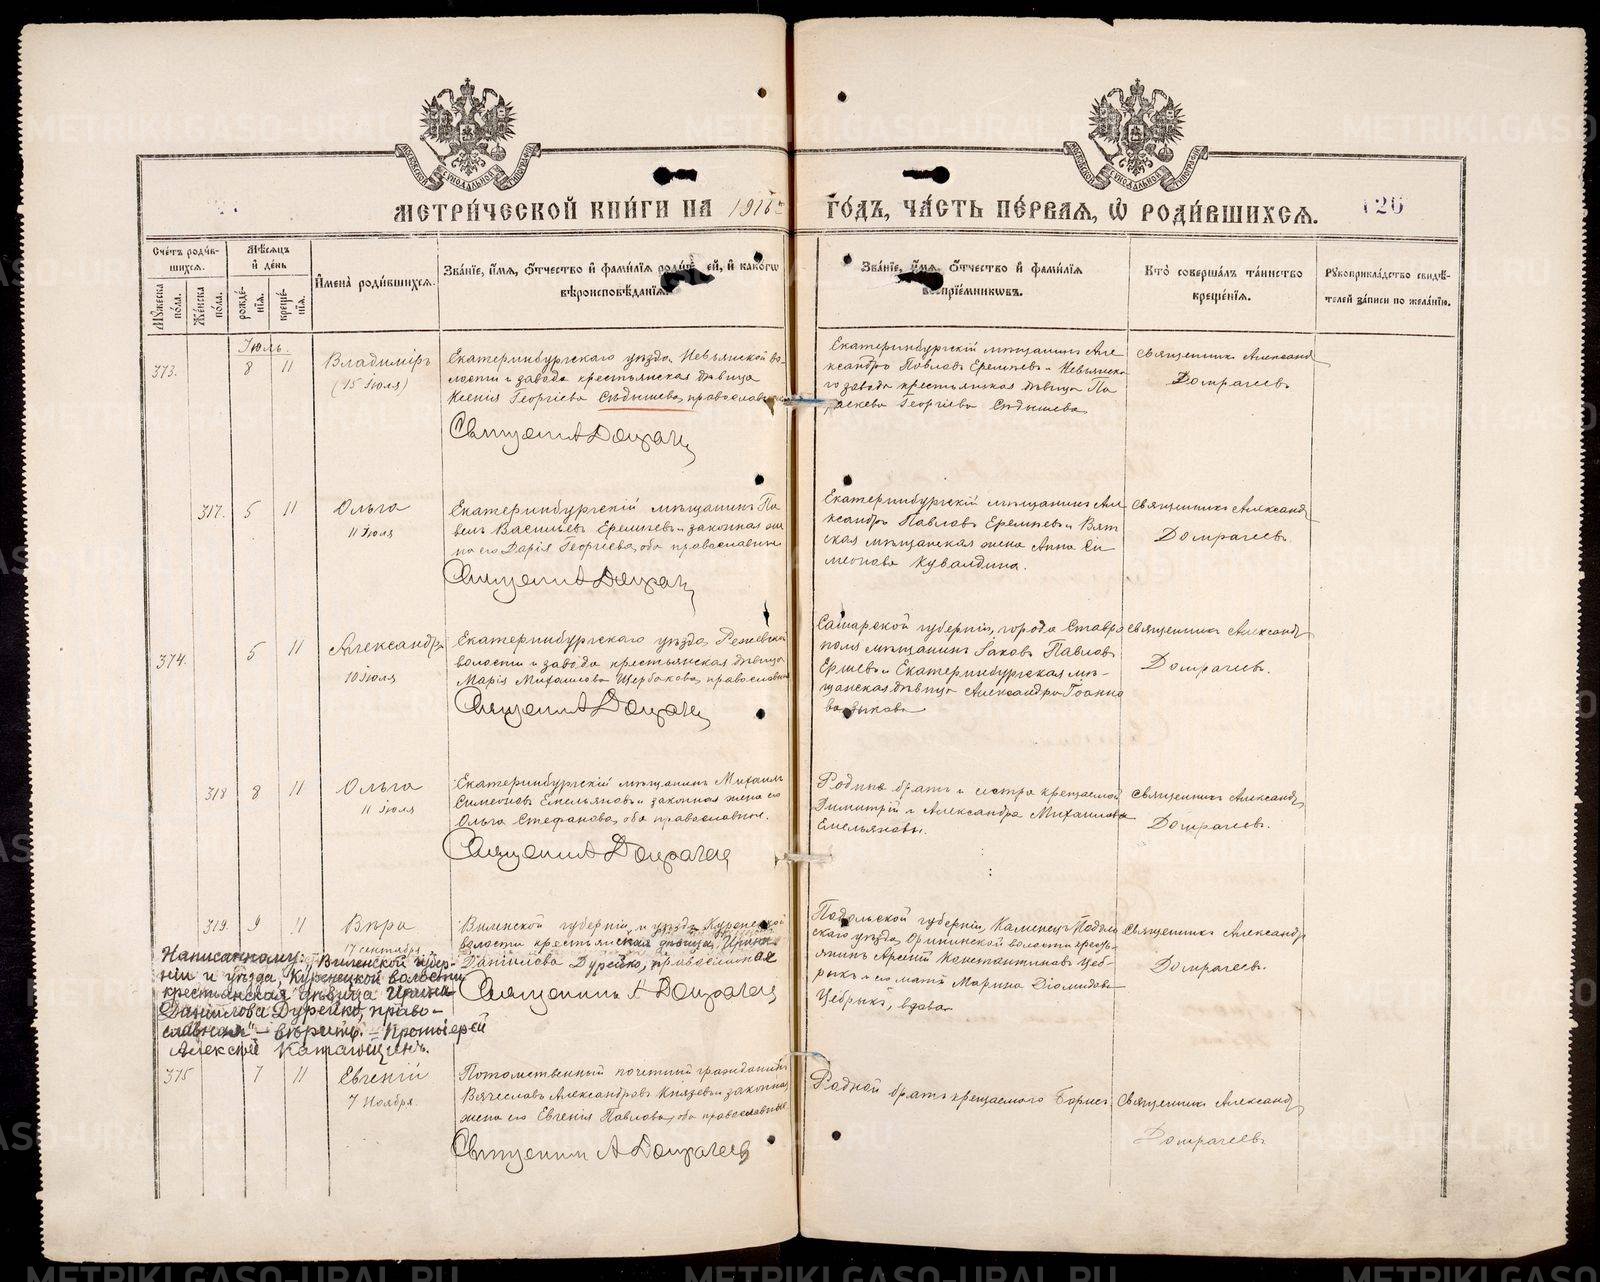 МЕТРИЧЕСКОЙ КНИГИ НА 1916 ГОДЪ, ЧАСТЬ ПЕРВАЯ, Ѡ РОДИВШИХСЯ. 126
Счетъ родив-
шихся.
Мужеска пола.
Женска пола.
Мѣсяцъ и день
рожде-
нія.
креще-
нія.
Имена родившихся.
Званіе, имя, отчество и фамилія родителей, и какогѡ
вѣроисповѣданія.
Званіе, имя, отчество и фамилія
воспріемниковъ.
Кто совершалъ таинство
крещенія.
Рукоприкладство свидѣ-
телей записи по желанію.
Іюль.
373. 8 11 Владиміръ
(15 Іюля)
Екатеринбургскаго уѣзда Невьянской во-
лости и завода крестьянская дѣвица
Ксенія Георгіева Сѣдышева, православная
Священникъ А Домрачевъ
Екатеринбургскій мѣщанинъ Але-
ксандръ Павловъ Еремѣевъ и Невьянска-
го завода крестьянская дѣвица Па-
раскева Георгіева Сѣдышева
Священникъ Александръ
Домрачевъ
317. 5 11 Ольга
11 Іюля
Екатеринбургскій мѣщанинъ Па-
велъ Васильевъ Еремѣевъ и законная же-
на его Дарія Георгіева, оба православные
Священникъ А Домрачевъ
Екатеринбургскій мѣщанинъ Але-
ксандръ Павловъ Еремѣевъ и Вят-
ская мѣщанская жена Анна Си-
меонова Кувалдина.
Священникъ Александръ
Домрачевъ.
374. 5 11 Александръ
10 Іюля
Екатеринбургскаго уѣзда, Режевской
волости и завода крестьянская дѣвица
Марія Михаилова Щербакова, православная
Священникъ А Домрачевъ
Самарской губерніи, города Ставро-
поля мѣщанинъ Іаковъ Павловъ
Ершевъ и Екатеринбургская мѣ-
щанская дѣвица Александра Іоанно-
ва Быкова
Священникъ Александръ
Домрачевъ.
318 8 11 Ольга
11 Іюля
Екатеринбургскій мѣщанинъ Михаилъ
Симеоновъ Емельяновъ и законная жена его
Ольга Стефанова, оба православные.
Священникъ А Домрачевъ
Родные братъ и сестра крещаемой
Димитрій и Александра Михаиловы
Емельяновы.
Священникъ Александръ
Домрачевъ.
319. 9 11 Вѣра
17 сентября
Виленской губерніи и уѣзда, Куренецкой
волости крестьянская дѣвица Ирина
Даніилова Дурейко, православная
Священникъ А Домрачевъ
Подольской губерніи, Каменецъ-Подоль-
скаго уѣзда, Орининской волости кресть-
янинъ Арсеній Константиновъ Цеб-
рыкъ и его мать Марина Діомидова
Цебрыкъ, вдова
Священникъ Александръ
Домрачевъ.
Написанному: "Виленской губер-
ніи и уѣзда, Куренецкой волости
крестьянская дѣвица Ирина
Даніилова Дурейко, право-
славная" – вѣрить. – Протоіерей
Алексѣй
375 7 11 Евгеній
7 Ноября.
Потомственный почетный гражданинъ
Вячеславъ Александровъ Князевъ и законная
жена его Евгенія Павлова, оба православные
Священникъ А Домрачевъ
Родной братъ крещаемого Борисъ.
Священникъ Александръ
Домрачевъ